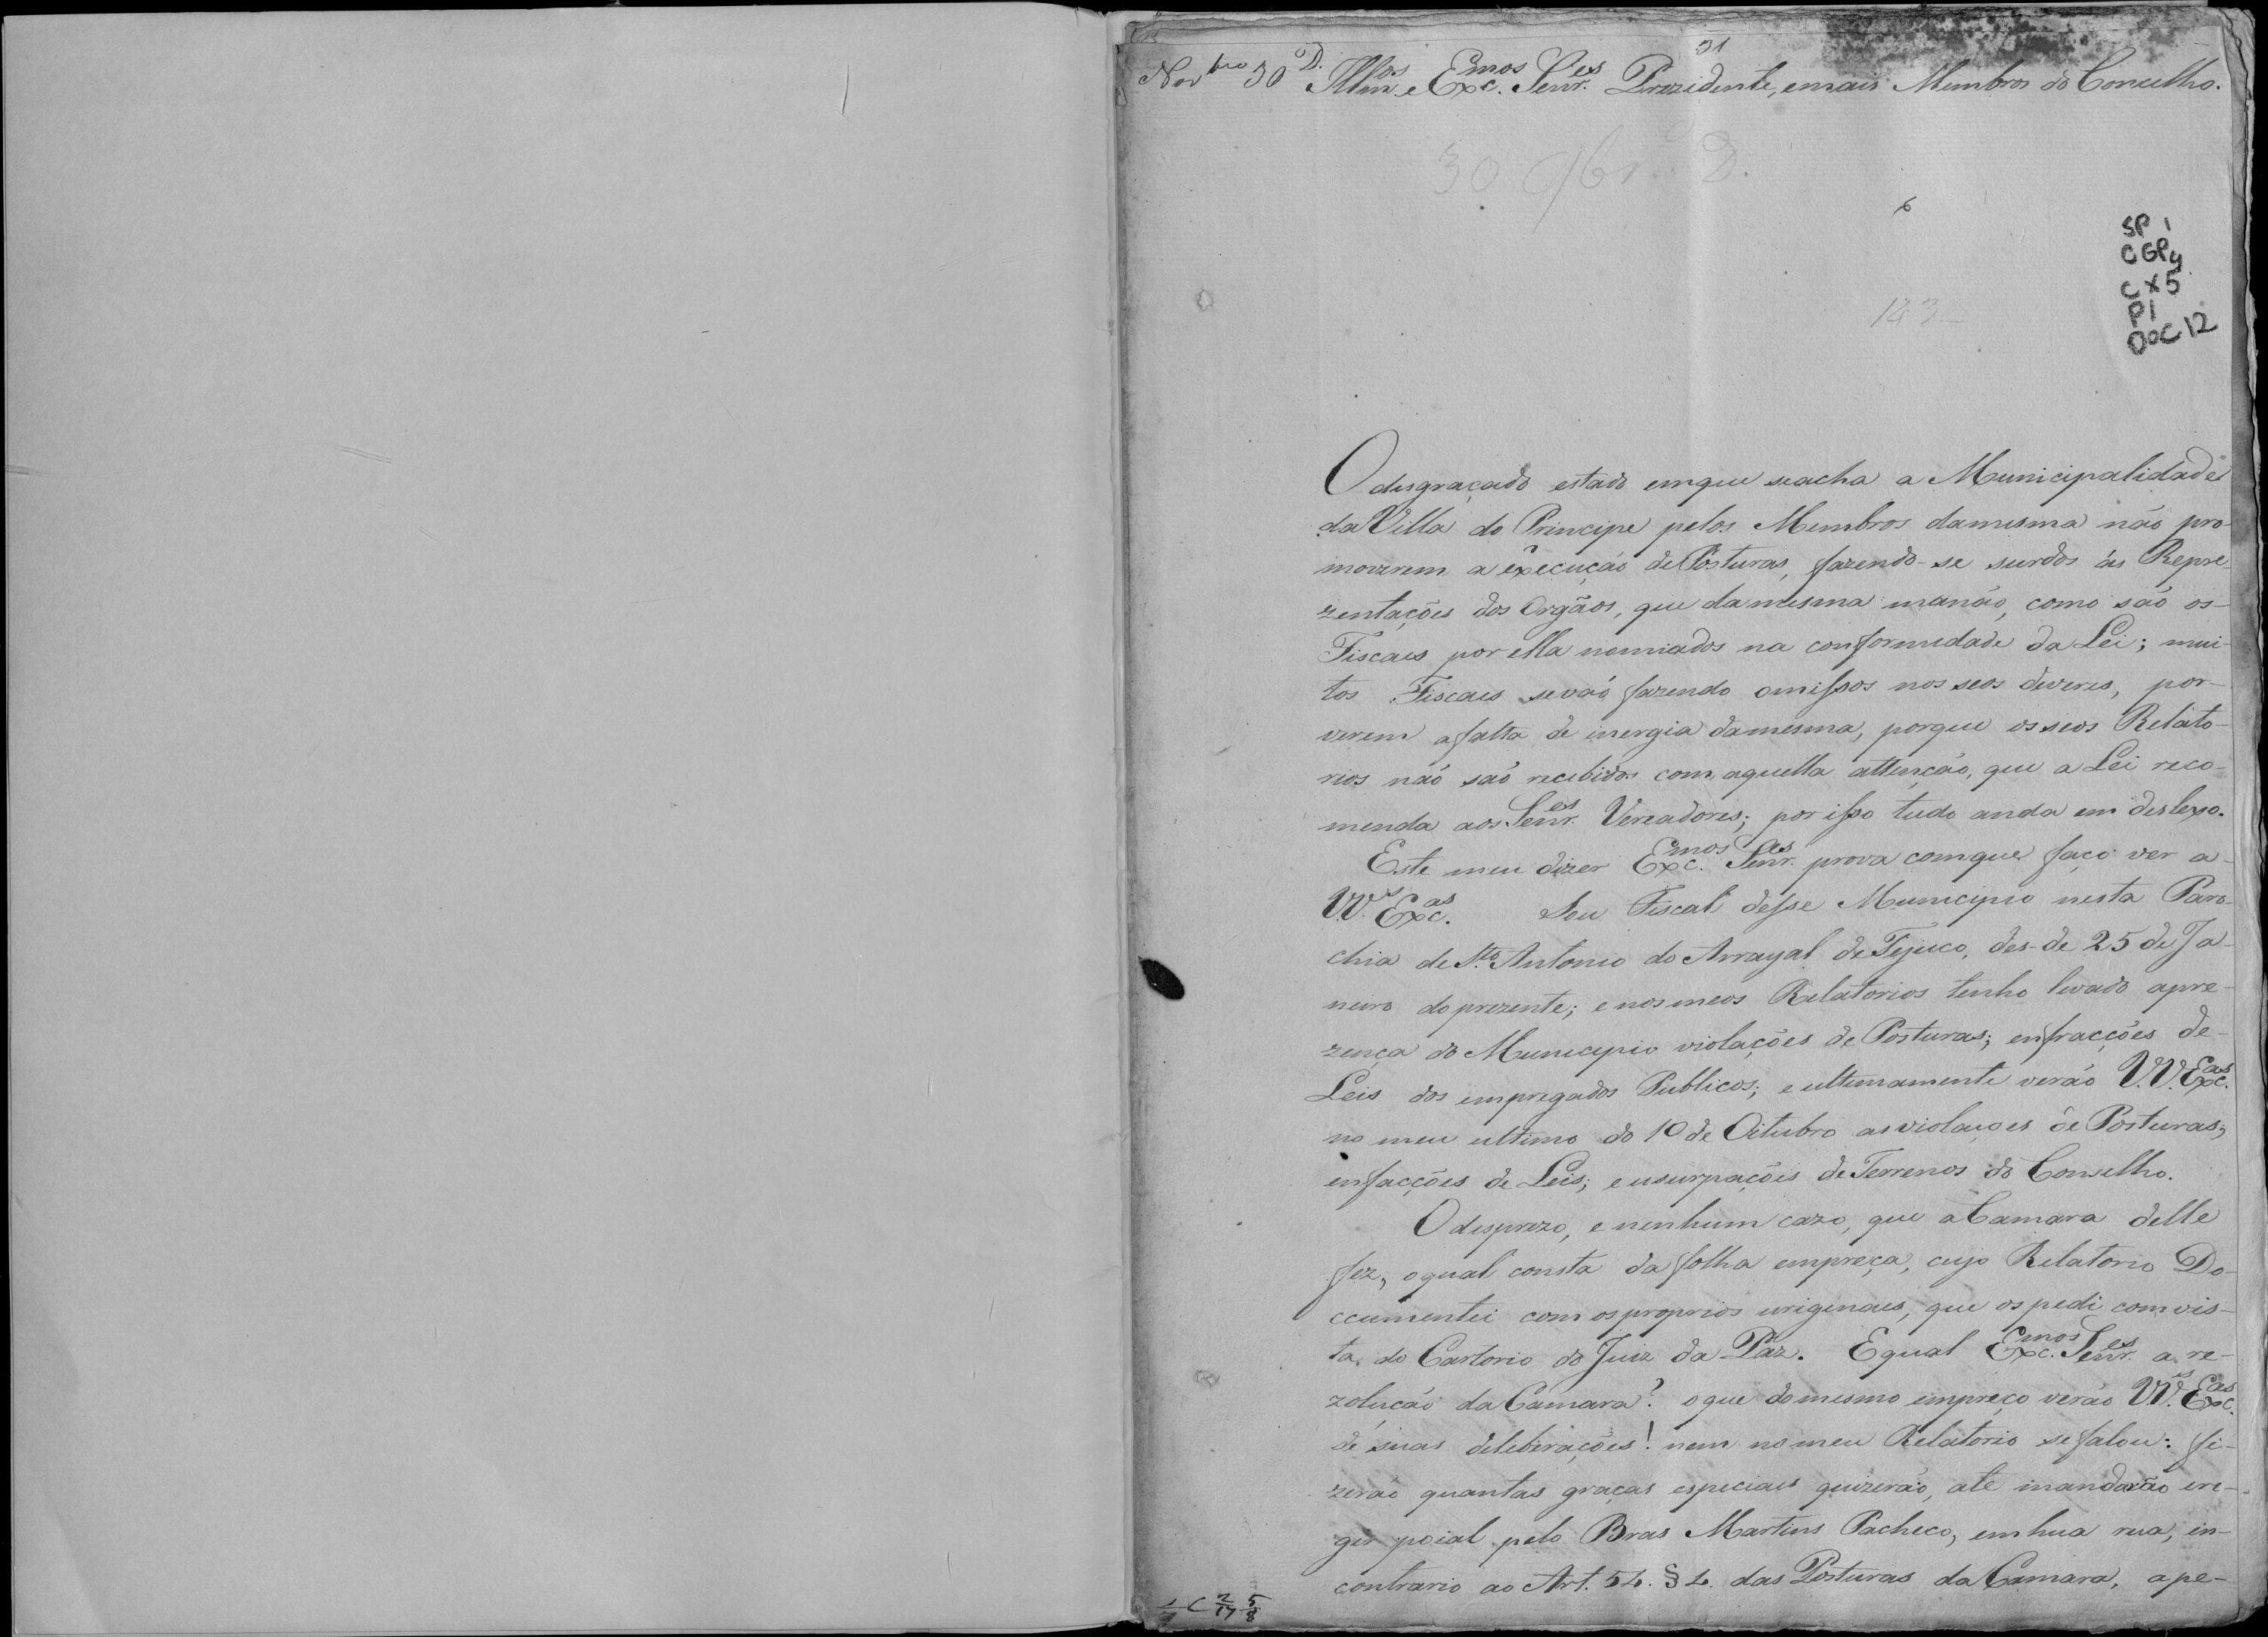 31
Nov bro 30 D. Illmos e Excmos Senres Prezidente, emais Membros do Concelho.
30 9br. D.
6
SP 1
CGP4
CX5
P1
DOC 12
143
O desgraçado estado emque seacha a Municipalidade
da Villa do Principe pelos Membros damesma não pro-
moverem a execução de Posturas, fazendo-se surdos ás Repre-
zentações dos Orgãos, que da mesma manão, como são os-
Fiscaes por ella nomiados na conformidade da Lei; mui-
tos Fiscaes sevão fazendo omissos nos seos deveres, por-
verem afalta de inergia damesma, porque os seos Relato-
rios não são recebidos com aquella attenção, que a Lei reco-
menda aos Senres Vereadores; por isso tudo anda em deslexo.
Este meu dizer Excmos Senres prova comque faço ver a
VVas Excas. Sou Fiscal desse Municipio nesta Paro-
chia de Sto Antonio do Arrayal de Tejuco, des-de 25 de Ja-
neiro do prezente; e nos meos Relatorios tenho levado apre-
zença do Municipio violações de Posturas; enfracções de-
Leis dos empregados Publicos; e ultimamente verão V.V. Excas.
no meu ultimo do 10 de Oitubro as violaçoes de Posturas;
enfacções de Leis; e usurpações de Terrenos do Conselho.
O desprezo, e nenhum cazo, que a Camara delle
fez, oqual consta da folha empreça, cujo Relatorio Do-
ccumentei com os proprios urigenaes, que os pedi com vis-
ta, do Cartorio do Juiz da Paz. Equal Excmos Senres a re-
zolução da Camara? oque do mesmo empreço verão VV. Excas.
de suas deleberações! nem no meu Relatorio se falou: fi-
zerão quantas graças especiaes quizerão, ate mandarão ere-
ger poial pelo Bras Martins Pacheco, em hua rua, in-
contrario ao Art. 54. § 4. das Posturas da Camara, a pe-